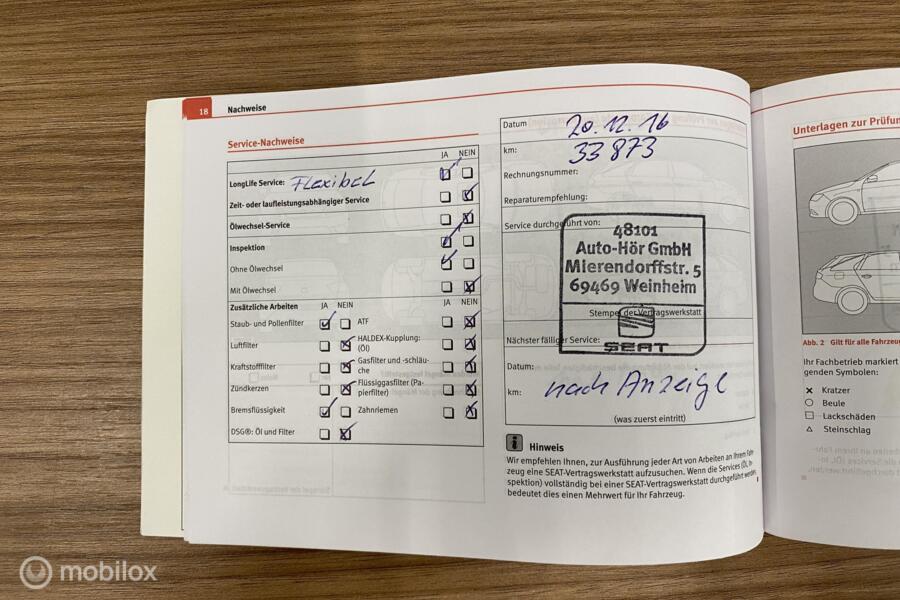 18 Nachweise
Service-Nachweise
JA NEIN
LongLife Service: Flexibel
Zeit- oder laufleistungsabhängiger Service
Ölwechsel-Service
Inspektion
Ohne Ölwechsel
Mit Ölwechsel
Zusätzliche Arbeiten JA NEIN JA NEIN
Staub- und Pollenfilter ATF
Luftfilter HALDEX-Kupplung:
(Öl)
Kraftstofffilter Gasfilter und -schläu-
che
Zündkerzen Flüssiggasfilter (Pa-
pierfilter)
Bremsflüssigkeit Zahnriemen
DSG®: Öl und Filter
Datum 20.12.16
km: 33 873
Rechnungsnummer:
Reparaturempfehlung:
Service durchgeführt von:
48101
Auto-Hör GmbH
Mierendorffstr. 5
69469 Weinheim
Stempel der Vertragswerkstatt
SEAT
Nächster fälliger Service:
Datum:
km: nach Anzeige
(was zuerst eintritt)
i Hinweis
Wir empfehlen Ihnen, zur Ausführung jeder Art von Arbeiten an Ihrem Fahr-
zeug eine SEAT-Vertragswerkstatt aufzusuchen. Wenn die Services (Öl, In-
spektion) vollständig bei einer SEAT-Vertragswerkstatt durchgeführt werden,
bedeutet dies einen Mehrwert für Ihr Fahrzeug.
Unterlagen zur Prüfun
Abb. 2 Gilt für alle Fahrzeug
Ihr Fachbetrieb markiert
genden Symbolen:
Kratzer
Beule
Lackschäden
Steinschlag
mobilox